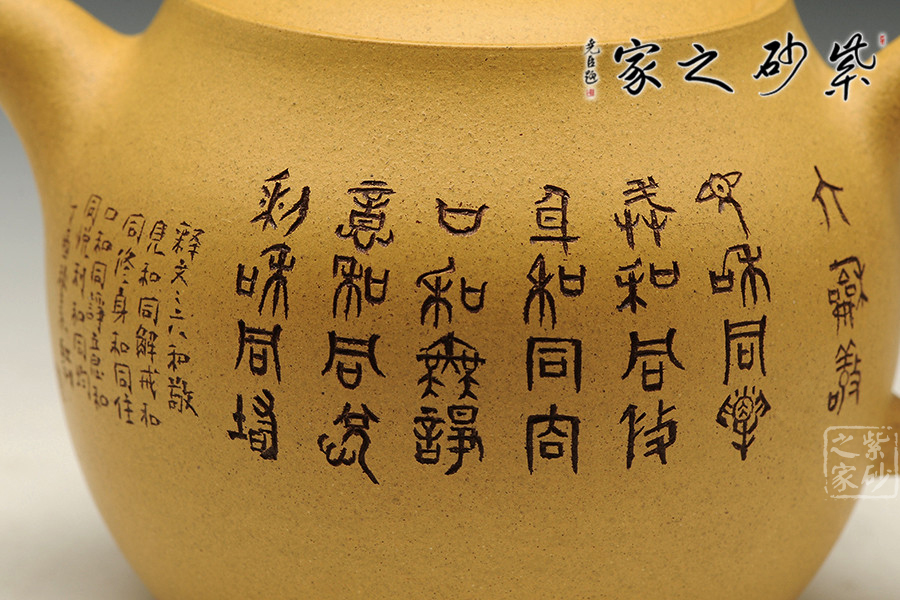 紫砂之家
尧臣题
六龢敬
見和同解
戒和同修
身和同住
口和無諍
意和同悦
利和同均
释文:六和敬
見和同解戒和
同修身和同住
口和同諍意和
同悦利和同均
紫砂之家